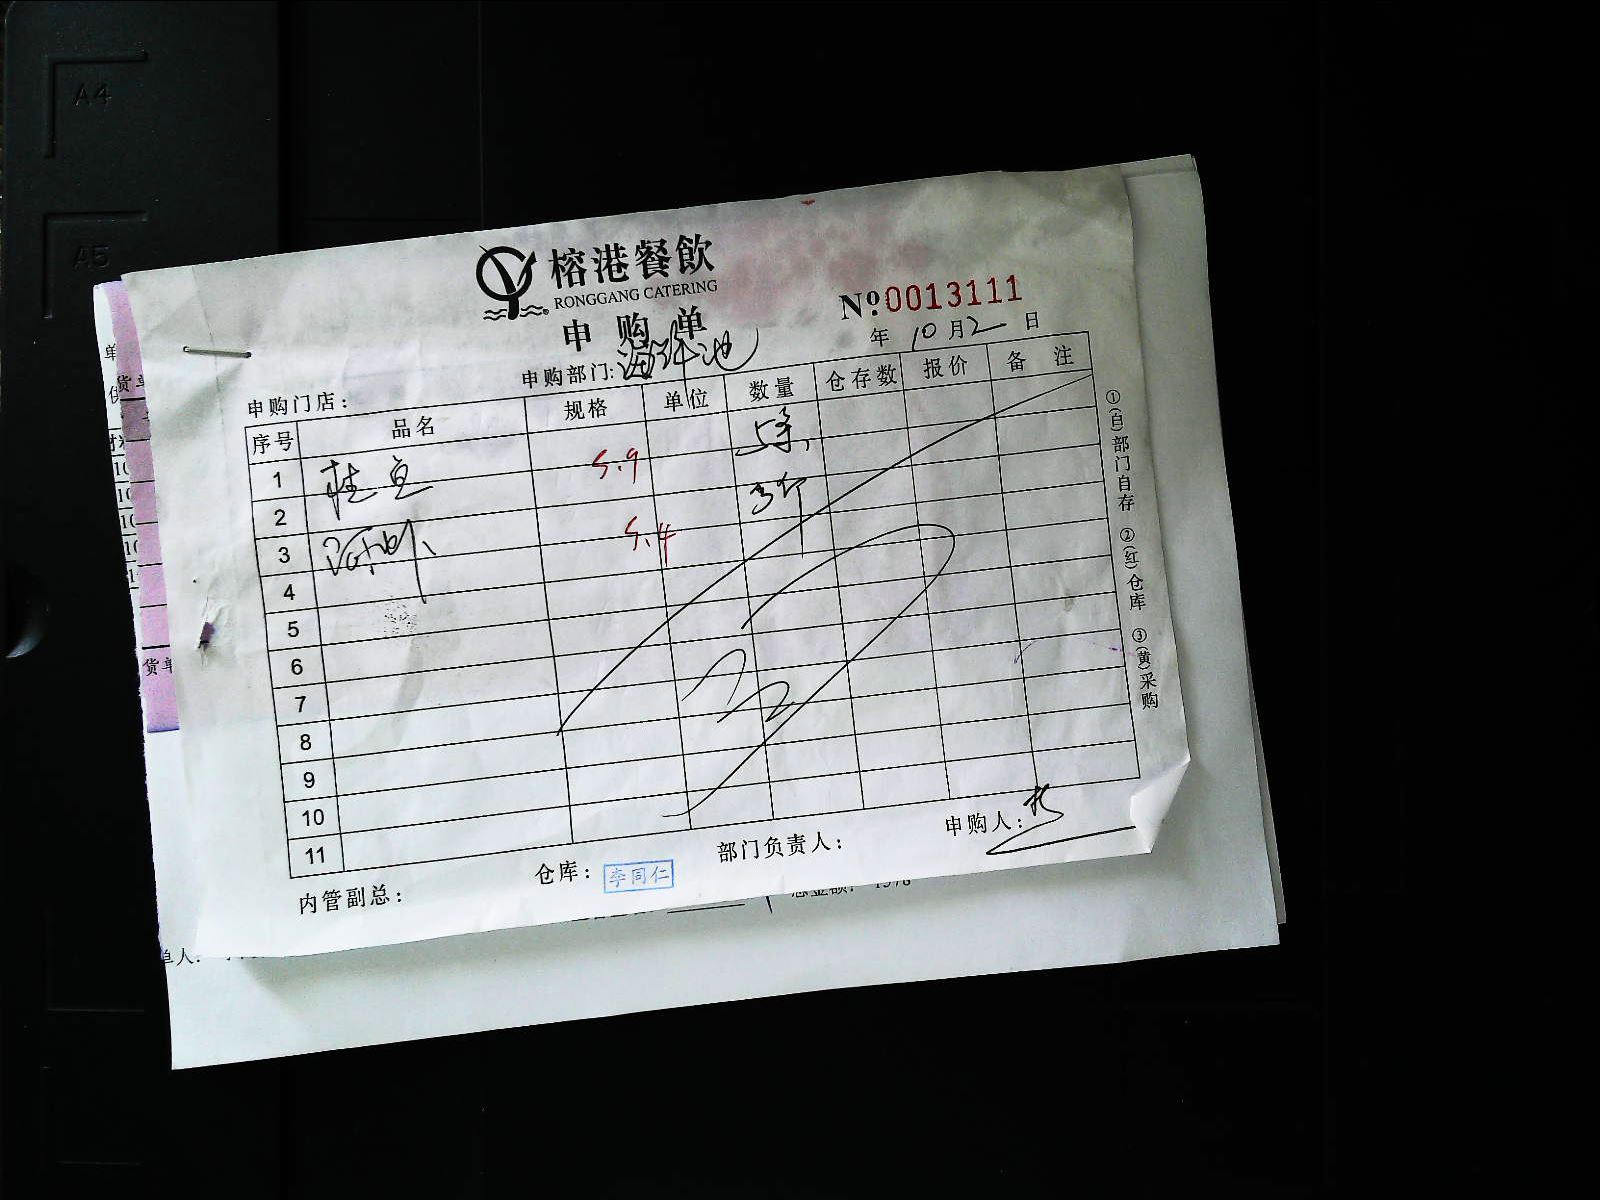 A4
A5
榕港餐飲
RONGGANG CATERING
申购单
№0013111
年10月2日
申购门店:
申购部门:海鲜池
序号 品名 规格 单位 数量 仓存数 报价 备注
1 桂鱼 5.9 5条
2
3 河虾 5.4 3斤
4
5
6
7
8
9
10
11
①(白)部门自存 ②(红)仓库 ③(黄)采购
内管副总:
仓库: 李同仁
部门负责人:
申购人:
货单
货单
单人: